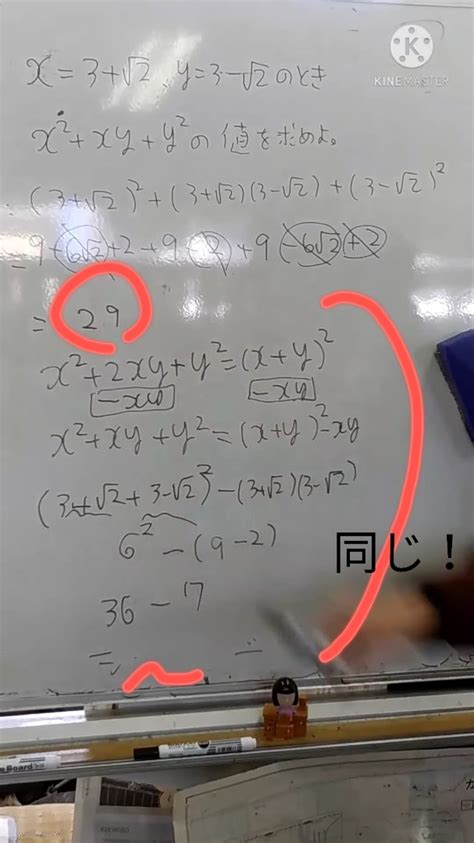 KINEMASTER
x = 3+√2、y = 3-√2 のとき
x²+xy+y² の値を求めよ。
(3+√2)²+(3+√2)(3-√2)+(3-√2)²
= 9+6√2+2+9-2+9-6√2+2
= 29
x²+2xy+y²=(x+y)²
-xy -xy
x²+xy+y²=(x+y)²-xy
(3+√2+3-√2)²-(3+√2)(3-√2)
6²-(9-2)
同じ！
36-7
=